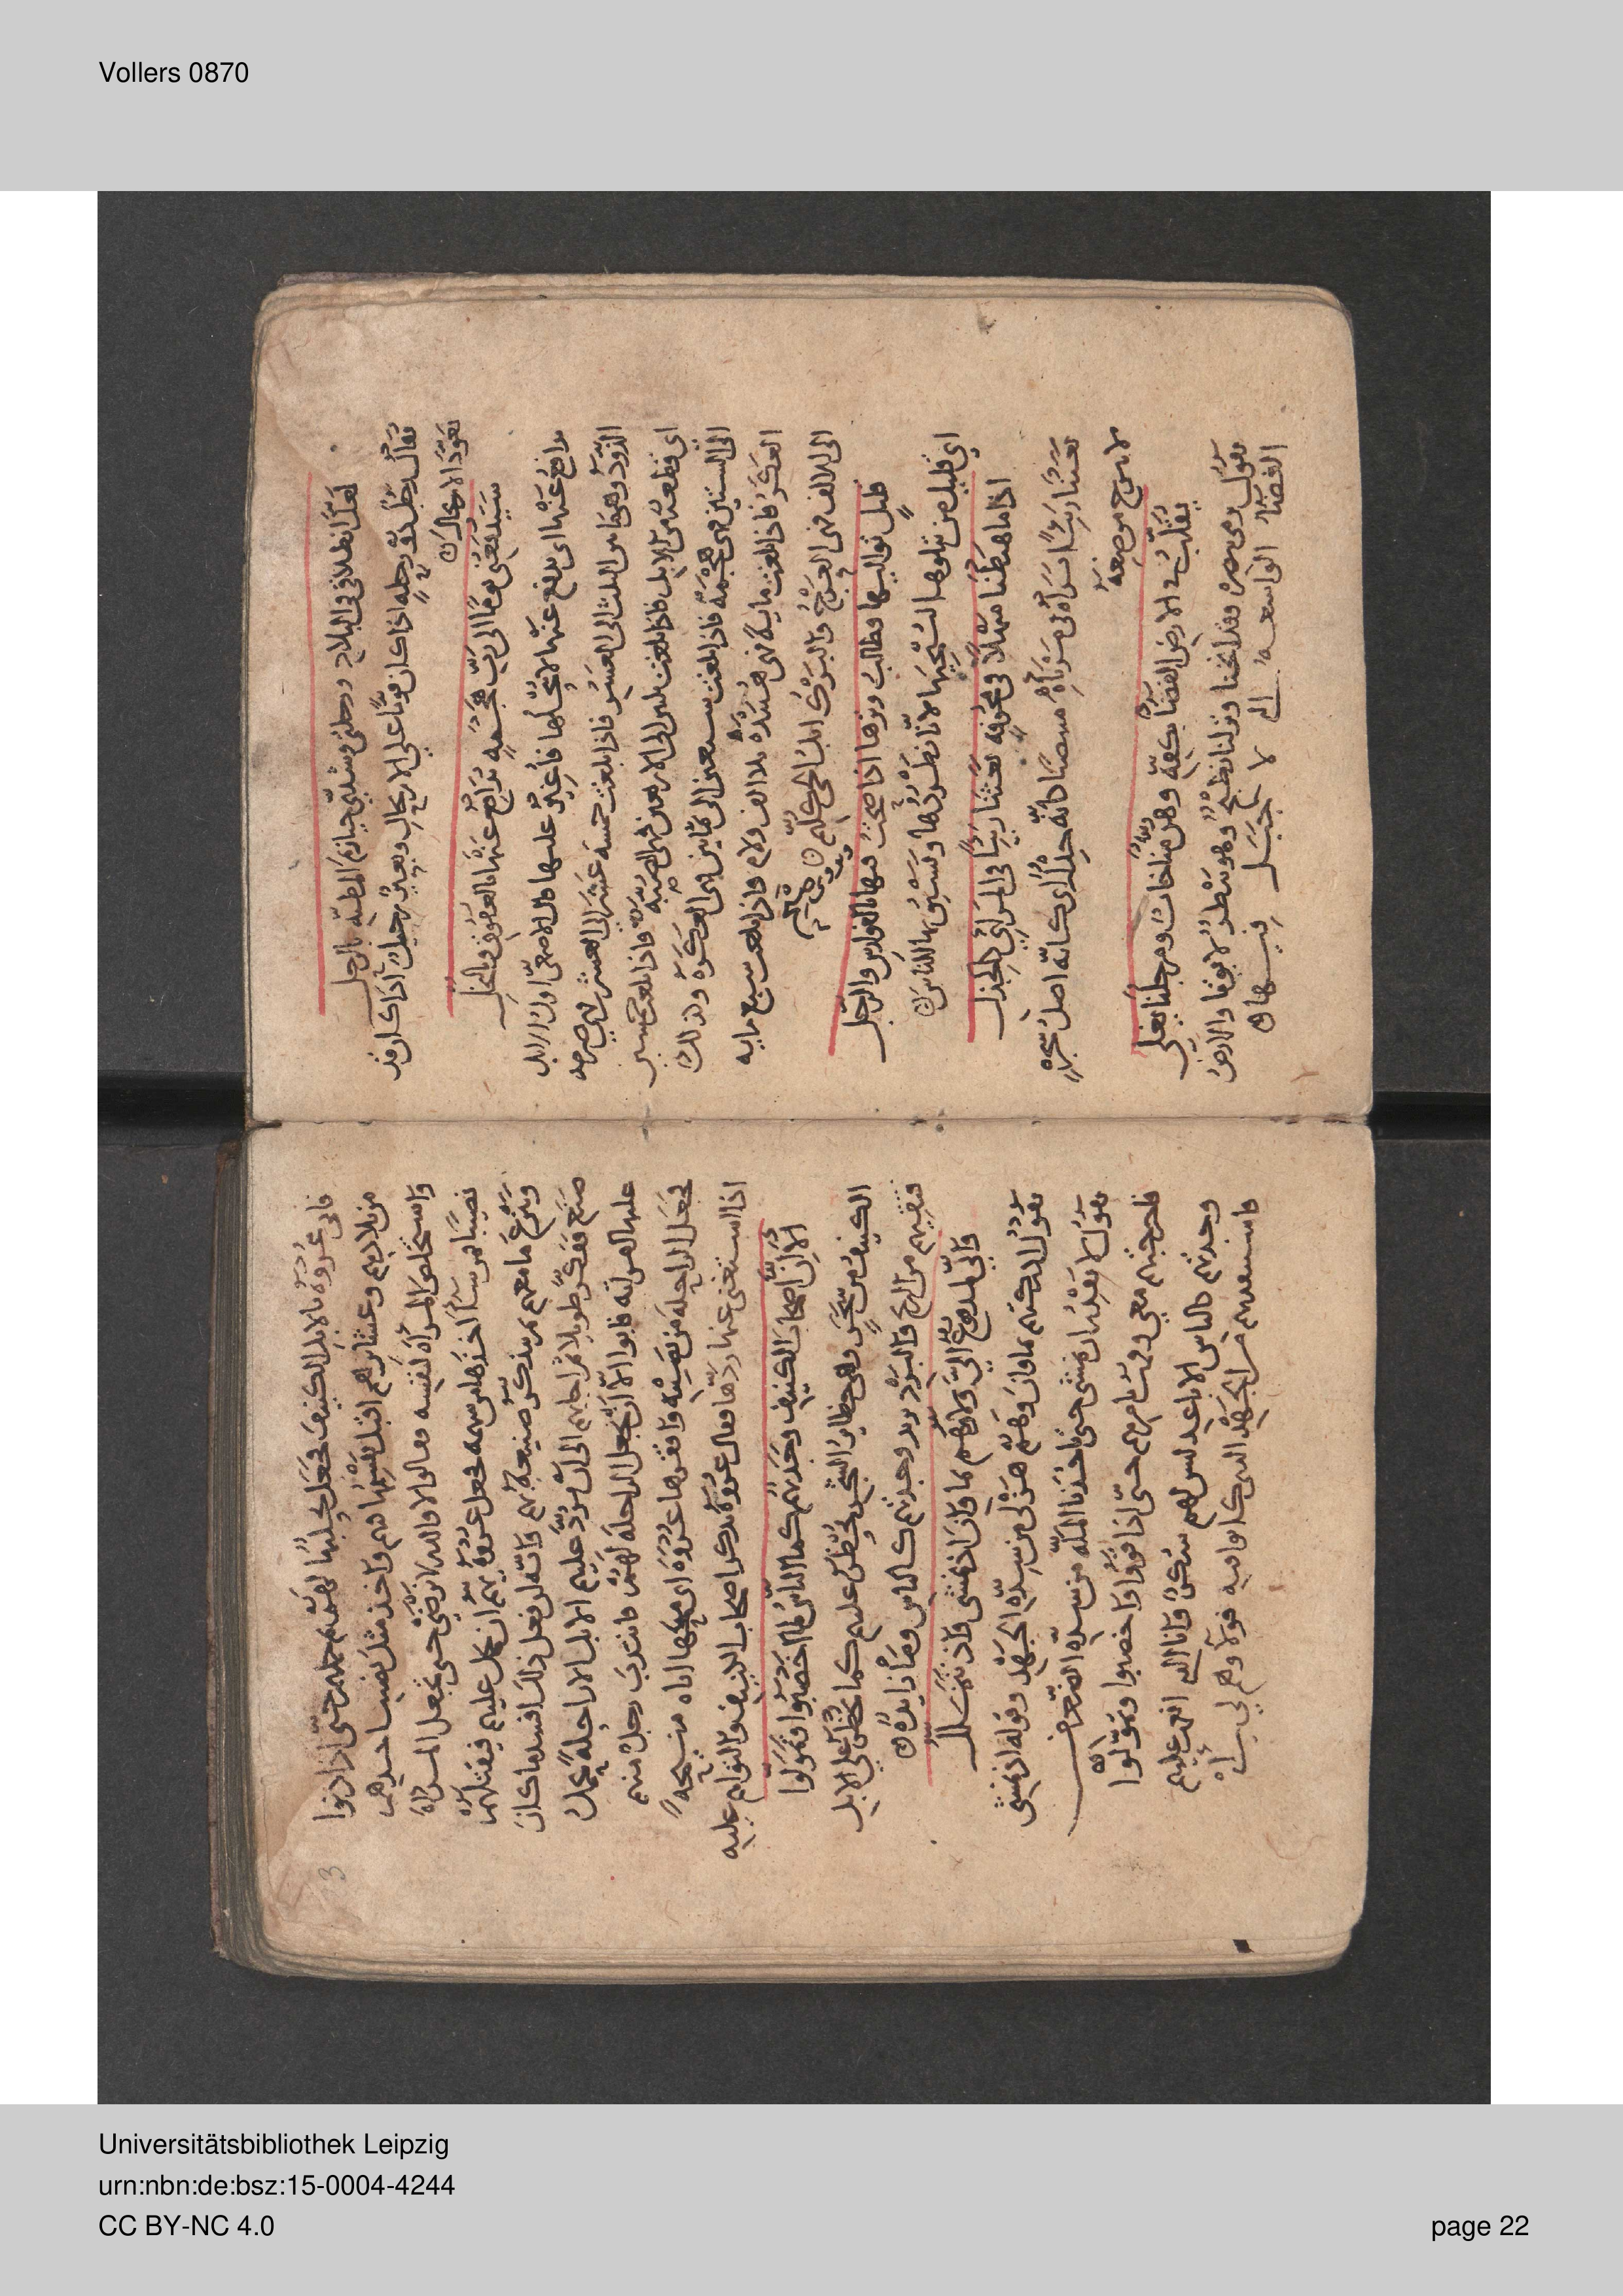 Vollers 0870
لعل انطلاقي في البلاد ورحلتي وشدي حيازيم المطية بالرحل
يقال رجل ذو رحله اذا كان قويا على الارتحال وبعير رحيل اذا كان قد
تعود الارتحال
سيدفعني يوما الى رب هجمة يدافع عنها بالعقوق وبالبخل
يدافع عنها اي يدفع عنها لا يحلبها فاغير عليها قال الاصمعي اول الابل
الذود وهي ما بين الثلث الى العشر فاذا بلغت خمسه عشر الى العشرين فهي صرمه
اي قطعة من الابل فاذا بلغت ثلثين الى الاربعين فهي الصبة فاذا بلغت خمسين
الى الستين فهي هجمة فاذا بلغت سبعين الى ثمانين فهي العكرة وذلك
العكر فاذا بلغت ماية فهي هنيدة بلا الف ولام فاذا بلغت سبع مايه
الى الالف فهي العرج والبرك ابل الحي كلهم
قليل تواليها وطالب وترها اذا صحت فيها بالفوارس والرجل
اي قليل من يتلوها لينجيها لانا نطردها ونسبق بها الناس
اذا ما هبطنا منهلا في مخوفة بعثنا ربيئا في المرابي كالجذل
بعثنا ربيئا نراه في مرباه منتصبا كانه جذل اي كانه اصل شجرة
لا يبرح موضعه
يقلب في الارض الفضاء بطرفه وهن مناخات ومرجلنا يغلي
يقول يرمي ببصره وقد انخنا ونزلنا نطبخ وهو ينظر والارض
الفضاء الواسعه التي لا جبل فيها
فاتى عروه بالابل الكنيف فجعل يحلبها لهم حتى اذا دنوا
من بلادهم وعشائرهم اقبل يقسمها فيهم واخذ مثل نصيب احدهم
واستخلص المراة لنفسه فقالوا لا والله لا نرضى حتى تجعل المراة
نصيبا من شاء اخذها من سهمه فجعل عروة يهم ان يحمل عليهم فيقتلهم
وينزع ما معهم ثم يذكر صنيعه بهم وانه ان فعل ذلك افسد ما كان
صنع ففكر طويلا ثم اجابهم الى ان يرد عليهم الابل الا راحلة يحمل
عليها المراة فابوا الا ان يجعل الراحلة لهم فانتدب رجل منهم
فجعل الراحلة من نصيبه وافقرها عروة اي منحها اياه منيحة
اذا استغنى عنها ردها فقال عروة يذكر اصحاب الكنيف والتوايهم عليه
الا ان اصحاب الكنيف وجدتهم كما الناس لما اخصبوا وتمولوا
الكنيف من شجر وهي حظاير الشجر تحظر عليهم كما يحظر على الابل
فتقيهم من الريح والبرد يريد وجدتهم كالناس وما زايدة
واني لمدفوع الي ولاؤهم بماوان اذ نمشي واذ نتململ
يقول ادركتهم بماوان وهم هزلى من شدة الجهد وقوله اذ نمشي
يقول لا نقدر ان نمشي حتى تاخذنا الملة من شدة الضعف
فخرجتهم معي وقمت بامرهم حتى اذا قووا واخصبوا وتمولوا
وجدتهم كالناس الاباعد ليس لهم شكر وانا الذي انعمت عليهم
واستنقذتهم من الجهد الذي كانوا فيه
Universitätsbibliothek Leipzig
urn:nbn:de:bsz:15-0004-4244
CC BY-NC 4.0
page 22